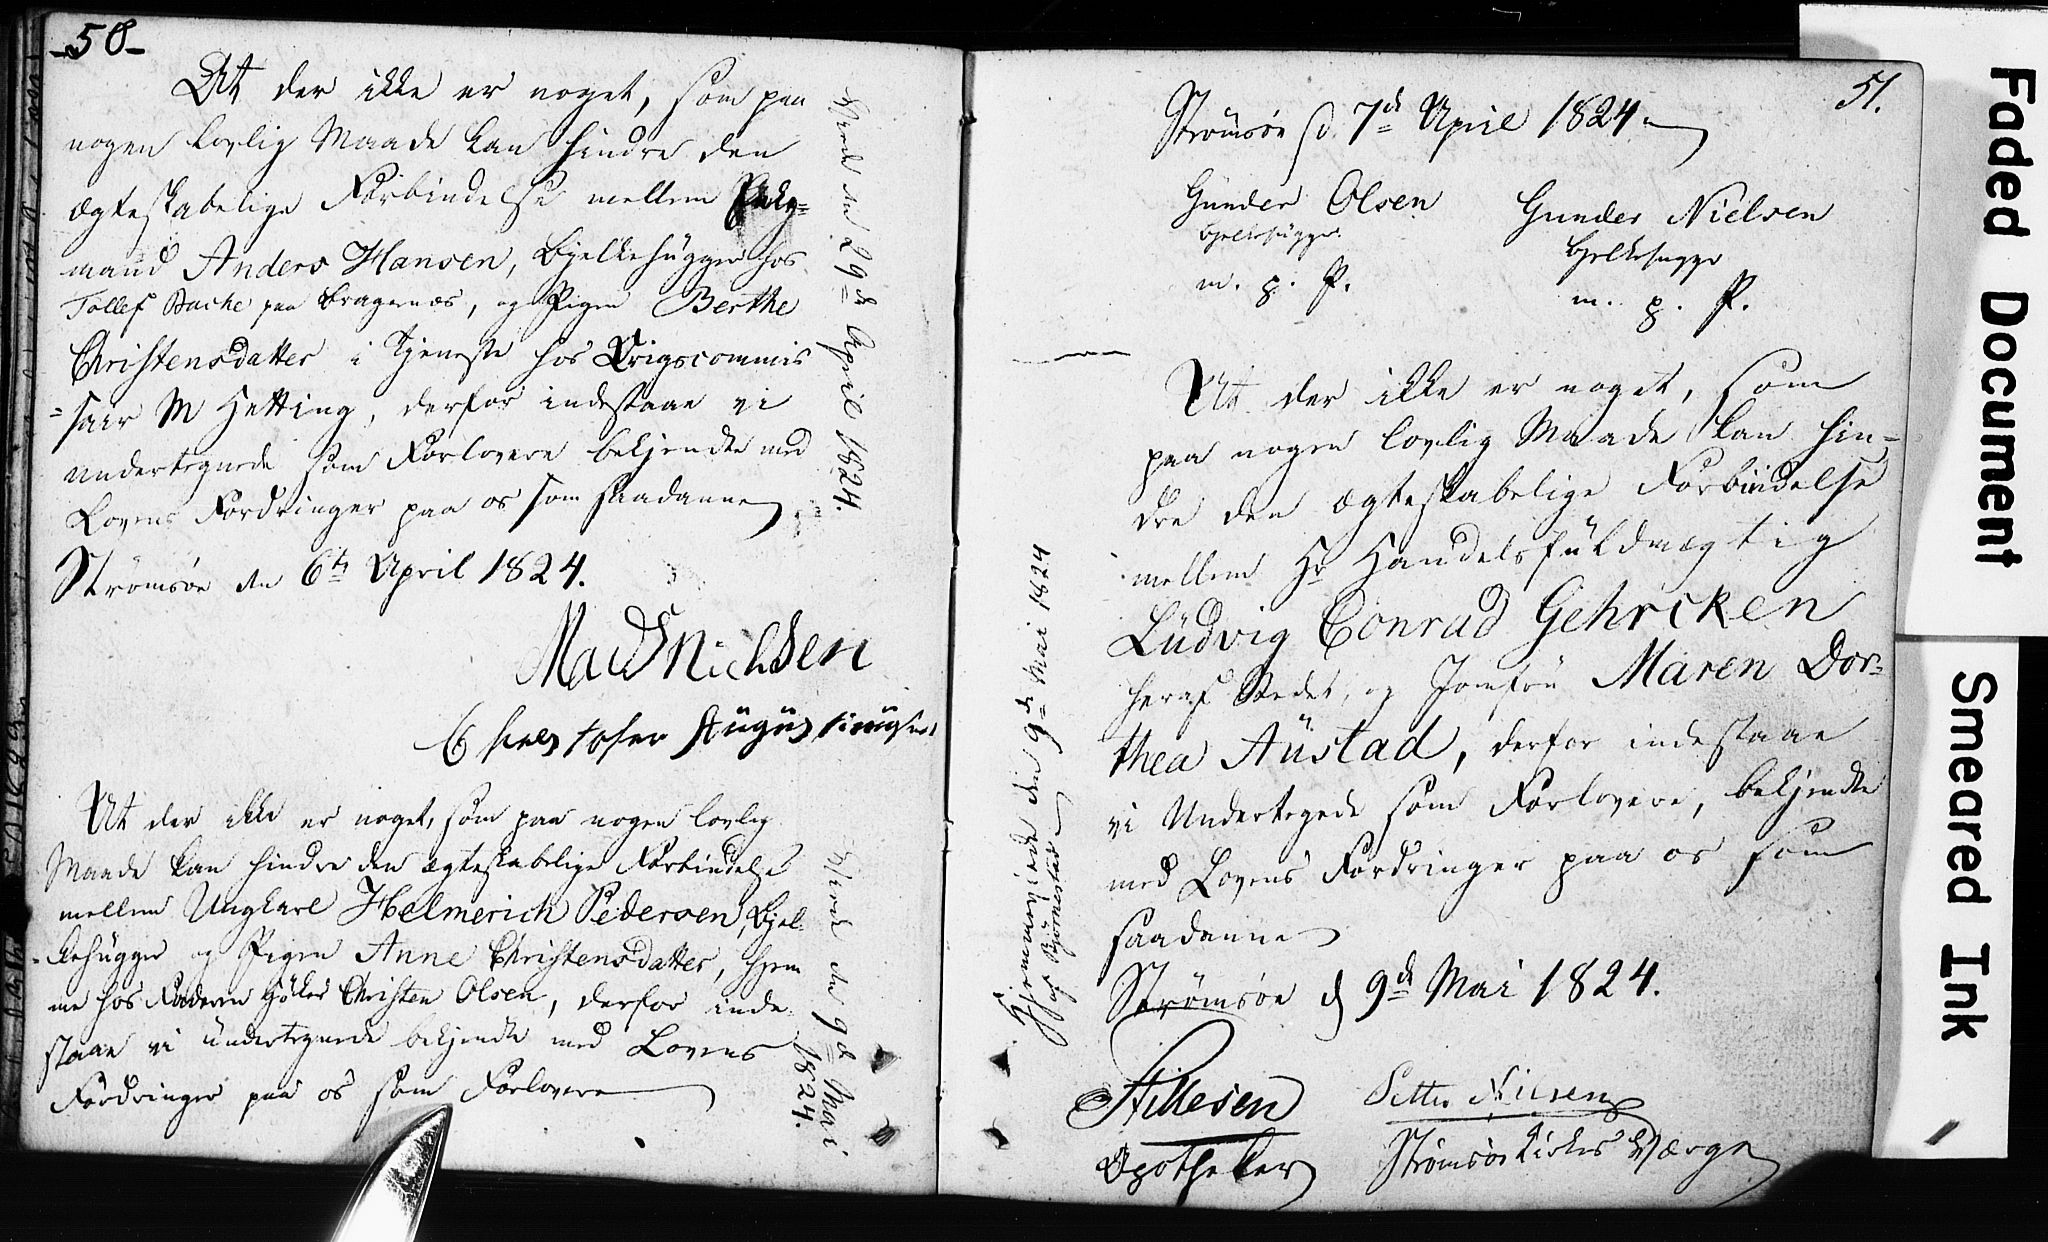 -50-
At der ikke er noget, som paa
nogen lovlig Maade kan hindre den
ægteskabelige Forbindelse mellem
mand Anders Hansen, Bjelkehugger hos
Tollef Bache paa Bragernæs, og Pigen Berthe
Christensdatter i Tjeneste hos Krigscommis
=sair M Hetting, derfor indestaae vi
undertegnede som Forlovere bekjendte med
Lovens Fordringer paa os som saadanne
Strømsøe den 6te April 1824.
Mads Nichlsen
Christofer Augustinusen
Viede den 29de April 1824.
At der ikke er noget, som paa nogen lovlig
Maade kan hindre den ægteskabelige Forbindelse
mellem Ungkarl Helmerich Pedersen, Bjel-
kehugger og Pigen Anne Christensdatter, hjem
me hos Faderen Høker Christen Olsen, derfor inde-
staae vi undertegnede bekjendte med Lovens
Fordringer paa os som Forlovere
Viede den 9de Mai
1824.
51.
Strømsøe d. 7de April 1824.
Gunder Olsen Gunder Nielsen
Bjelkehugger Bjelkehugger
m. p. P. m. p. P.
At der ikke er noget, som
paa nogen lovlig Maade kan hin-
dre den ægteskabelige Forbindelse
mellem Hr Handelsfuldmægtig
Ludvig Conrad Gehrcken
heraf Stedet, og Jomfru Maren Dor-
thea Austad, derfor indestaae
vi Undertegede som Forlovere, bekjendte
med Lovens Fordringer paa os som
saadanne
Strømsøe d 9de Mai 1824.
Hillesen Petter Nilsen
Apotheker Strømsøe Kirkes Værge
Hjemmeviede den 9de Mai 1824
af Bjørnestad
Faded Document
Smeared Ink